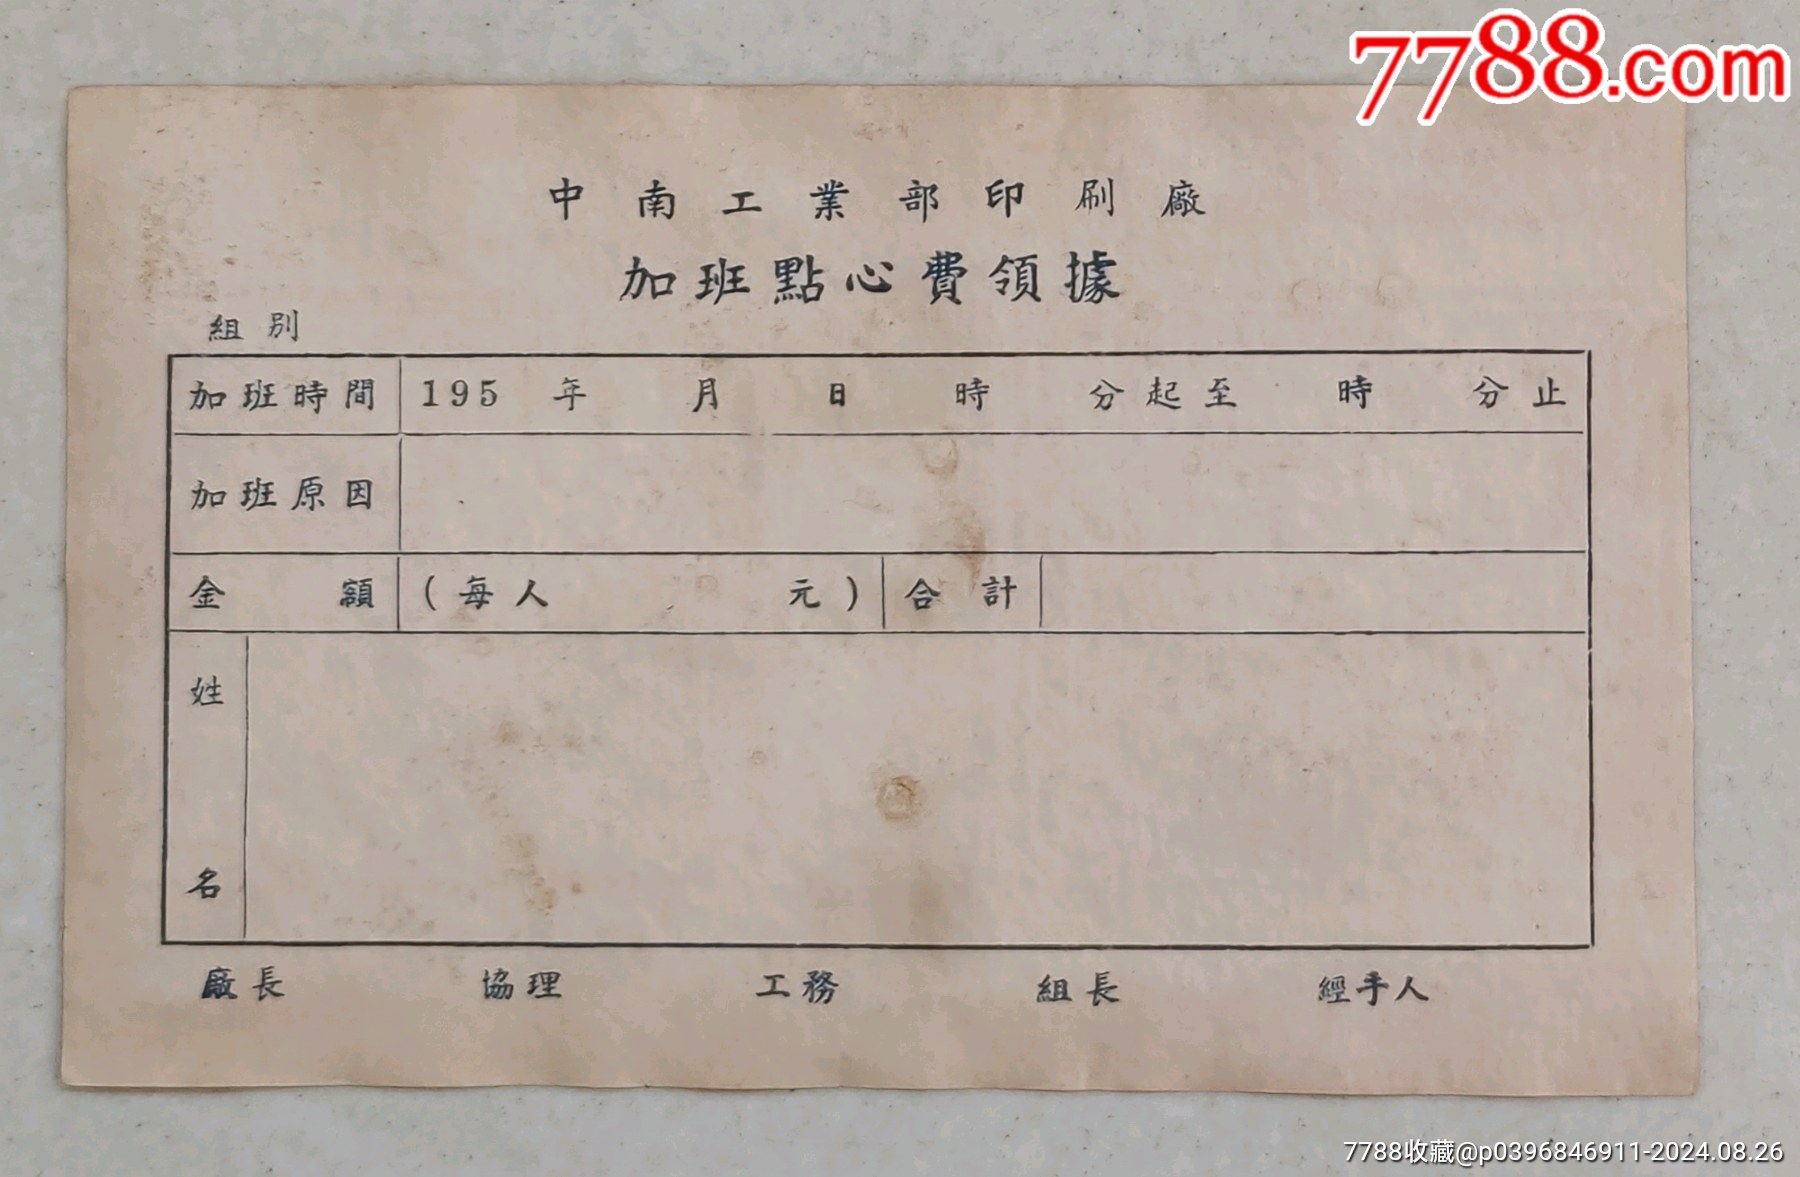 7788.com
中南工業部印刷廠
加班點心費領據
組別
加班時間 195 年 月 日 時 分起至 時 分止
加班原因
金額 (每人 元) 合計
姓名
廠長 協理 工務 組長 經手人
7788收藏@p0396846911-2024.08.26